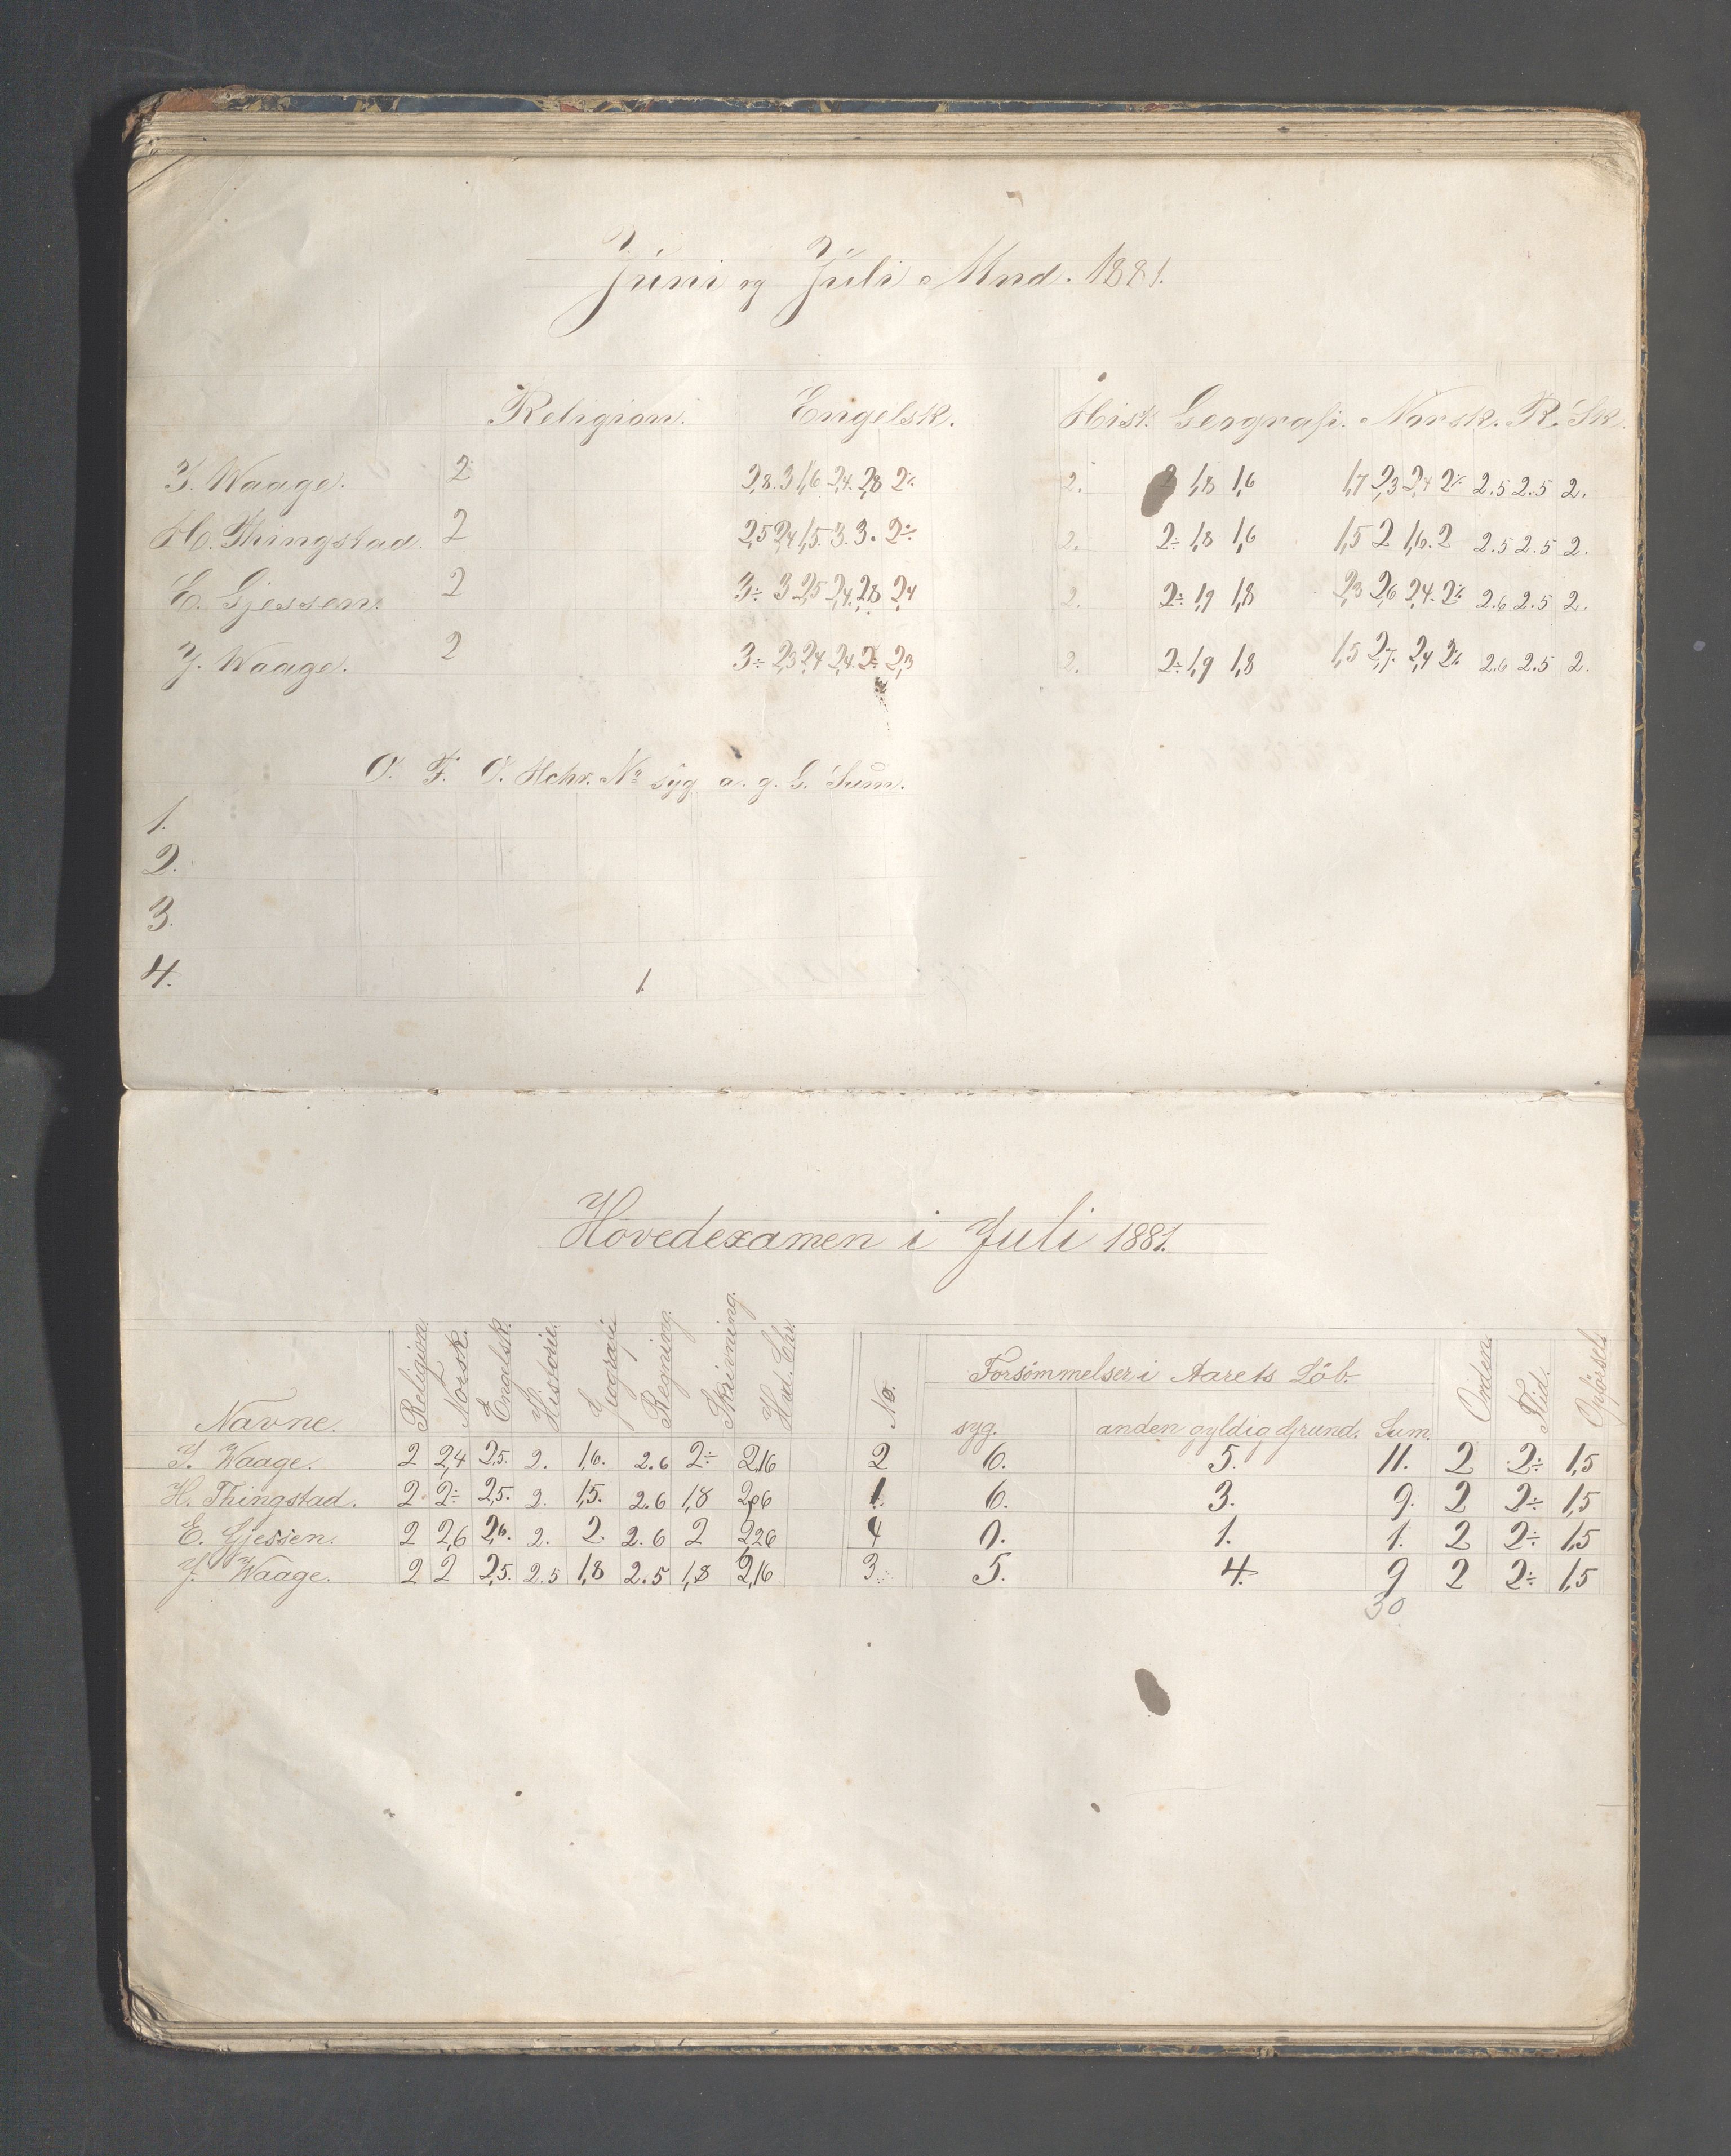 Juni og Juli Mnd. 1881.
Religion. Engelsk. Hist. Geografi. Norsk. R. Sk.
T. Waage. 2 2,8. 3 1,6 2,4. 2,8 2÷ 2. 1,8 1,6 1,7 2,3 2,4 2÷ 2.5 2.5 2.
H. Thingstad. 2 2,5 2,4 1,5. 3. 3. 2÷ 2. 2÷ 1,8 1,6 1,5 2 1,6. 2 2.5 2.5 2.
E. Gjessen. 2 3÷ 3 2,5 2,4. 2,8 2,4 2. 2÷ 1,9 1,8 2,3 2,6 2,4. 2÷ 2.6 2.5 2.
J. Waage. 2 3÷ 2,3 2,4 2,4. 2÷ 2,3 2. 2÷ 1,9 1,8 1,5 2,7. 2,4 2÷ 2.6 2.5 2.
O. F. O. Hchr. No syg a. g. G. Sum.
1.
2.
3.
4. 1.
Hovedexamen i Juli 1881.
Navne. Religion. Norsk. Engelsk. Historie. Jeografi Regning. Skrivning. Hud. Chr. No. Forsömmelser i Aarets Löb. Orden. Flid. Opförsel.
syg. anden gyldig Grund. Sum.
T. Waage. 2 2,4 2,5. 2. 1,6. 2.6 2÷ 2,16 2 6. 5. 11. 2 2÷ 1,5
H. Thingstad. 2 2÷ 2,5. 2. 1,5. 2.6 1,8 2,06 1. 6. 3. 9. 2 2÷ 1,5
E. Gjessen. 2 2,6 2,6. 2. 2. 2.6 2 2,26 4 0. 1. 1. 2 2÷ 1,5
J. Waage. 2 2 2,5. 2.5 1,8 2.5 1,8 2,16 3. 5. 4. 9 2 2÷ 1,5
30